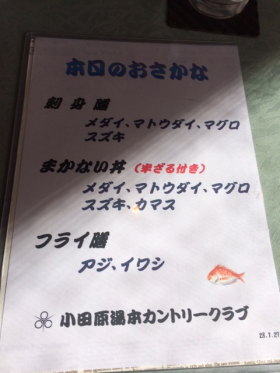 本日のおさかな
刺身膳
メダイ、マトウダイ、マグロ
スズキ
まかない丼(半ざる付き)
メダイ、マトウダイ、マグロ
スズキ、カマス
フライ膳
アジ、イワシ
小田原湯本カントリークラブ